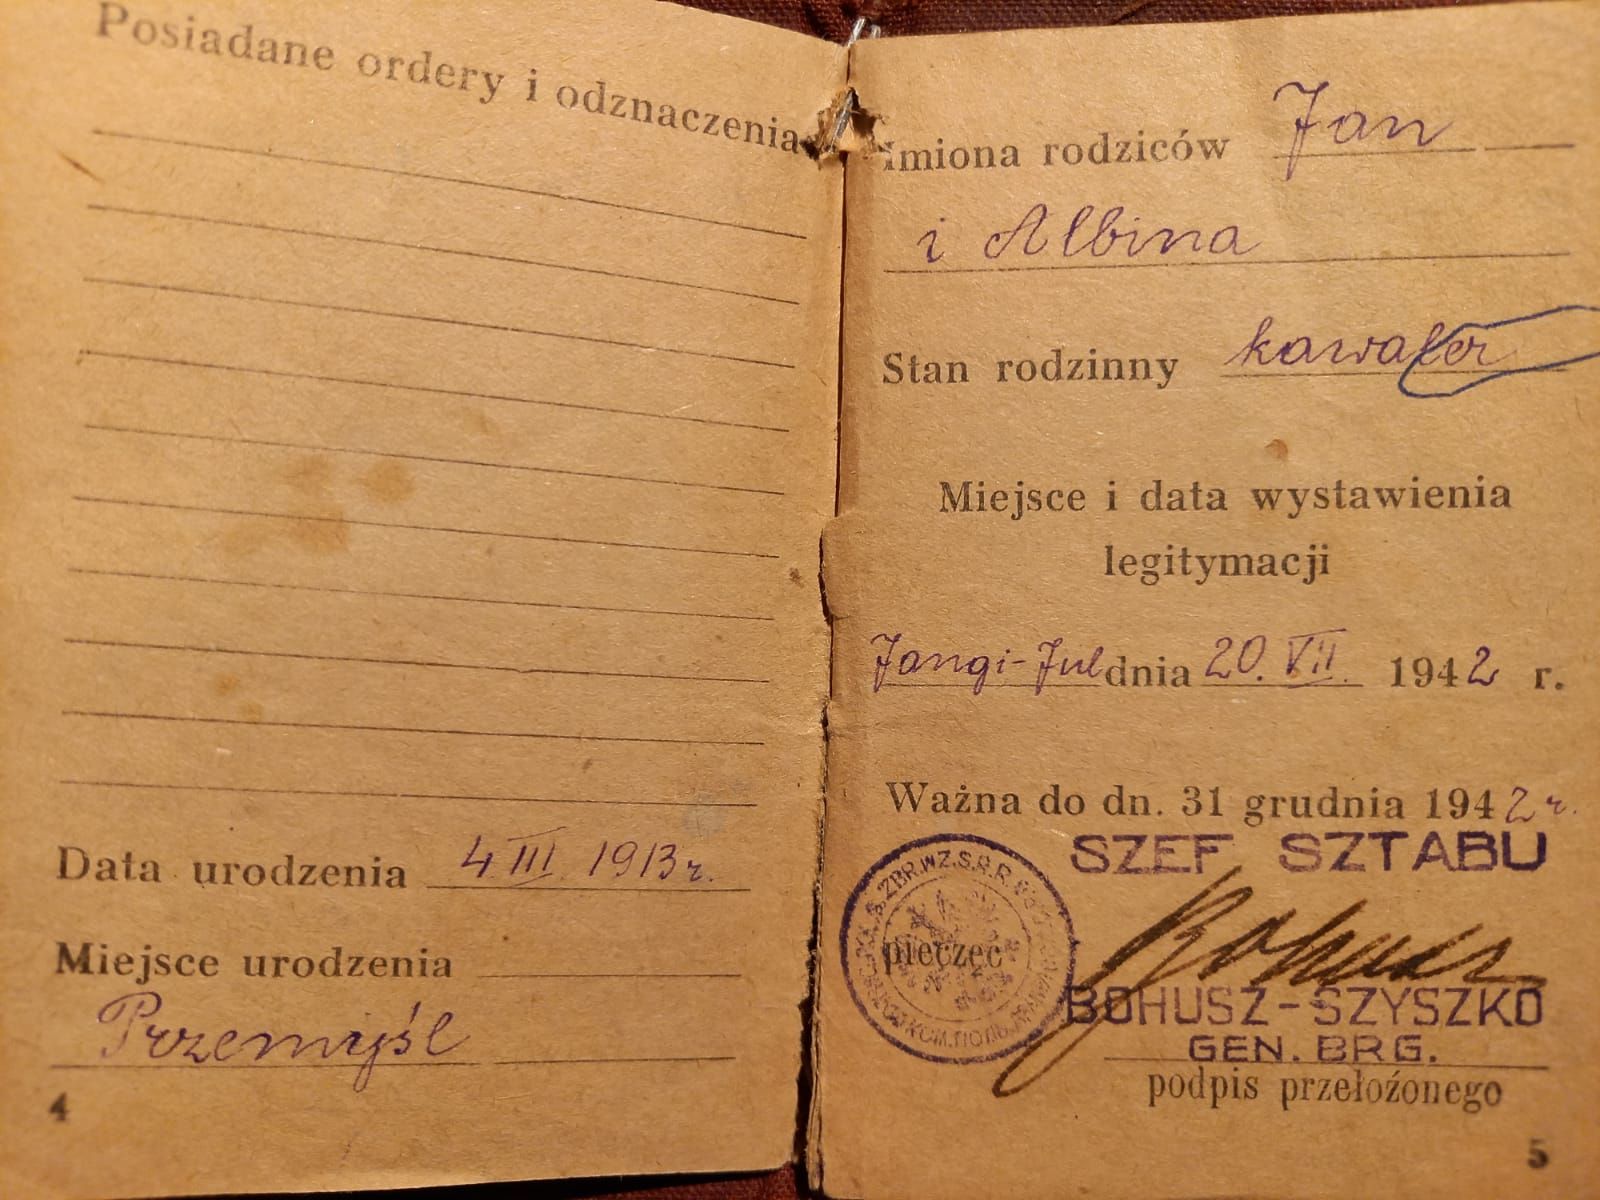 Posiadane ordery i odznaczenia
Data urodzenia 4 III 1913 r.
Miejsce urodzenia
Przemyśl
4
Imiona rodziców Jan
i Albina
Stan rodzinny kawaler
Miejsce i data wystawienia
legitymacji
Jangi-Jul dnia 20. VII. 1942 r.
Ważna do dn. 31 grudnia 1942 r.
SZEF SZTABU
pieczęć
Bohusz
BOHUSZ-SZYSZKO
GEN. BRG.
podpis przełożonego
5